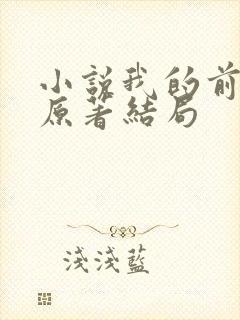 小說我的前
原著結局
淺淺藍